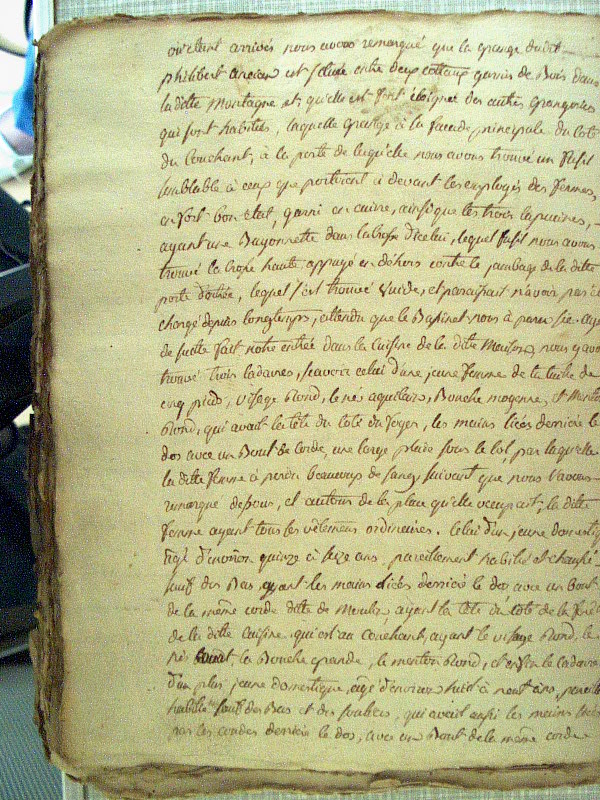 ou étant arrivés nous avons remarqué que la grange dudit
philibert ancian est située entre deux cottaux garnis de Bois dans
la ditte Montagne et qu'elle est fort éloignée des autres grangeries
qui sont habités, laquelle grange a la facade principale du coté
du Couchant, à la porte de laquelle nous avons trouvé un fusil
semblable à ceux que portoient ci devant les employés des fermes,
en fort bon etat, garni en cuivre, ainsi que les trois capucines,
ayant une Bayonnette dans la crosse d'icelui, lequel fusil nous avons
trouvé la crosse haute appuyé en déhors contre le jambage de la ditte
porte d'entrée, lequel s'est trouvé vuide, et paraissait n'avoir pas été
chargé depuis longtemps, attendu que le Bassinet nous à paru sec. ayant
de suitte fait notre entrée dans la cuisine de la ditte Maison nous y avons
trouvé trois cadavres, scavoir celui d'une jeune femme de la taille de
cinq pieds, visage Rond, le nés aquilain, Bouche moyenne, et Menton
Rond, qui avait la tête du coté du foyer, les mains liées derrière le
dos avec un Bout de corde, une large plaie sous le col, par laquelle
la ditte femme à perdu beaucoup de sang, suivant que nous l'avons
remarqué dessous, et autour de la place qu'elle occupait; la ditte
femme ayant tous les vêtemens ordinaires. Celui d'un jeune domestique
agé d'environ quinze à seize ans, pareillement habillé et chaussé
sauf des Bas, ayant les mains liées derrière le dos avec un bout
de la même corde ditte de Moulin, ayant la tête du coté de la fenêtre
de la ditte cuisine qui est au couchant, ayant le visage Rond, le
nés court, la Bouche grande, le menton Rond, et enfin le cadavre
d'un plus jeune domestique, agé d'environ huit à neuf ans, pareillement
habillé sauf des Bas et des souliers, qui avait aussi les mains liées
par les coudes derrière le dos, avec un Bout de la même corde